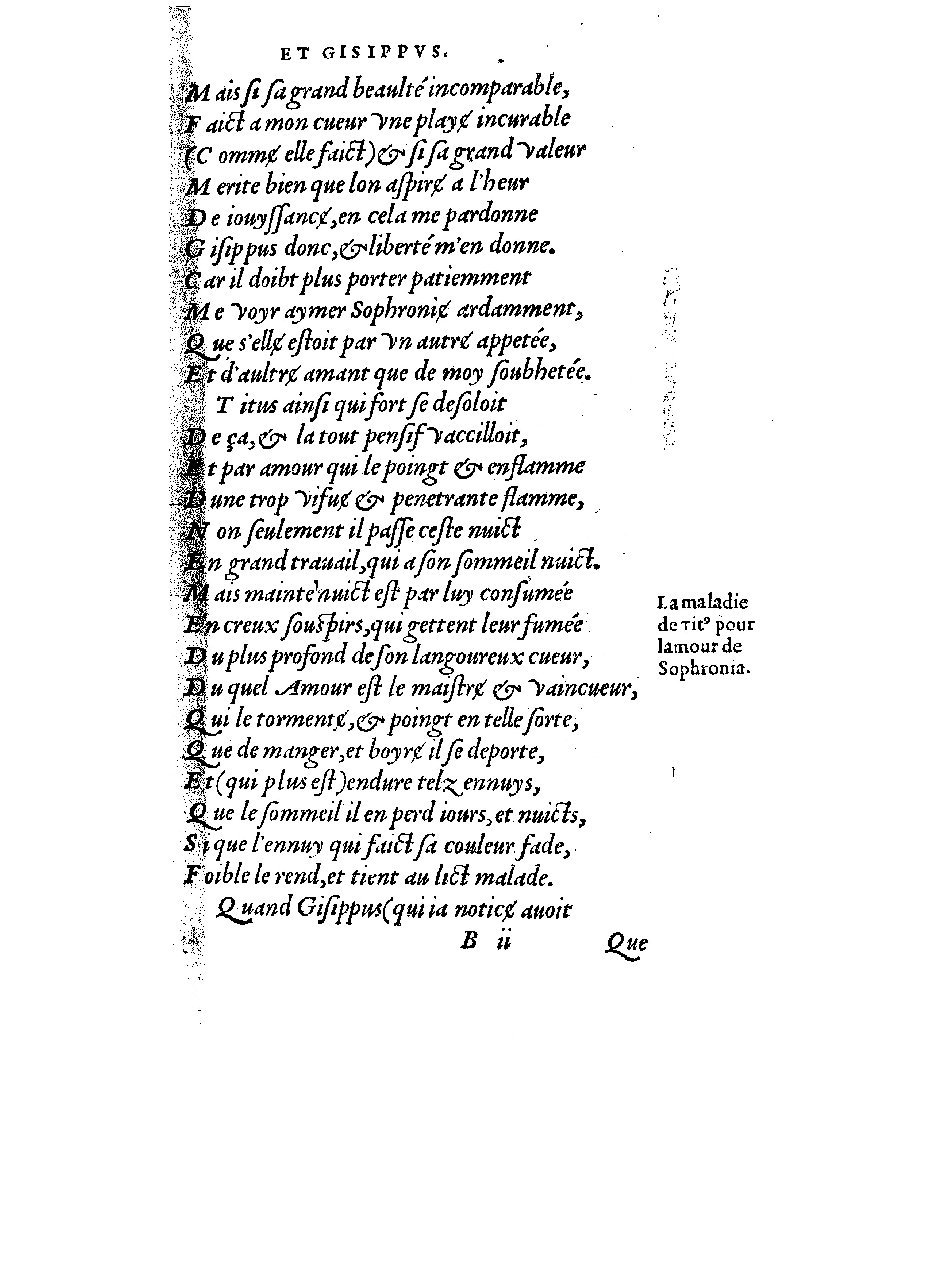 ET GISIPPVS.
Mais ſi ſa grand beaulté incomparable,
Faict a mon cueur vne playɇ incurable
(Commɇ elle faict) & ſi ſa grand valeur
Merite bien que lon aſpirɇ a l'heur
De iouyſſancɇ, en cela me pardonne
Giſippus donc, & liberté m'en donne.
Car il doibt plus porter patiemment
Me voyr aymer Sophroniɇ ardamment,
Que s'ellɇ eſtoit par vn autrɇ appetée,
Et d'aultrɇ amant que de moy ſoubhetée.
Titus ainſi qui fort ſe deſoloit
De ça, & la tout penſif vaccilloit,
Et par amour qui le poingt & enflamme
Dune trop vifuɇ & penetrante flamme,
Non ſeulement il paſſe ceſte nuict
En grand trauail, qui a ſon ſommeil nuict.
Mais mainte nuict eſt par luy conſumée
En creux ſouſpirs, qui gettent leur fumée
Du plus profond de ſon langoureux cueur,
Du quel Amour eſt le maiſtrɇ & vaincueur,
Qui le tormentɇ, & poingt en telle ſorte,
Que de manger, et boyrɇ il ſe deporte,
Et (qui plus eſt) endure telz ennuys,
Que le ſommeil il en perd iours, et nuicts,
Si que l'ennuy qui faict ſa couleur fade,
Foible le rend, et tient au lict malade.
Quand Giſippus (qui ia noticɇ auoit
La maladie
de Titꝰ pour
lamour de
Sophronia.
B ii Que